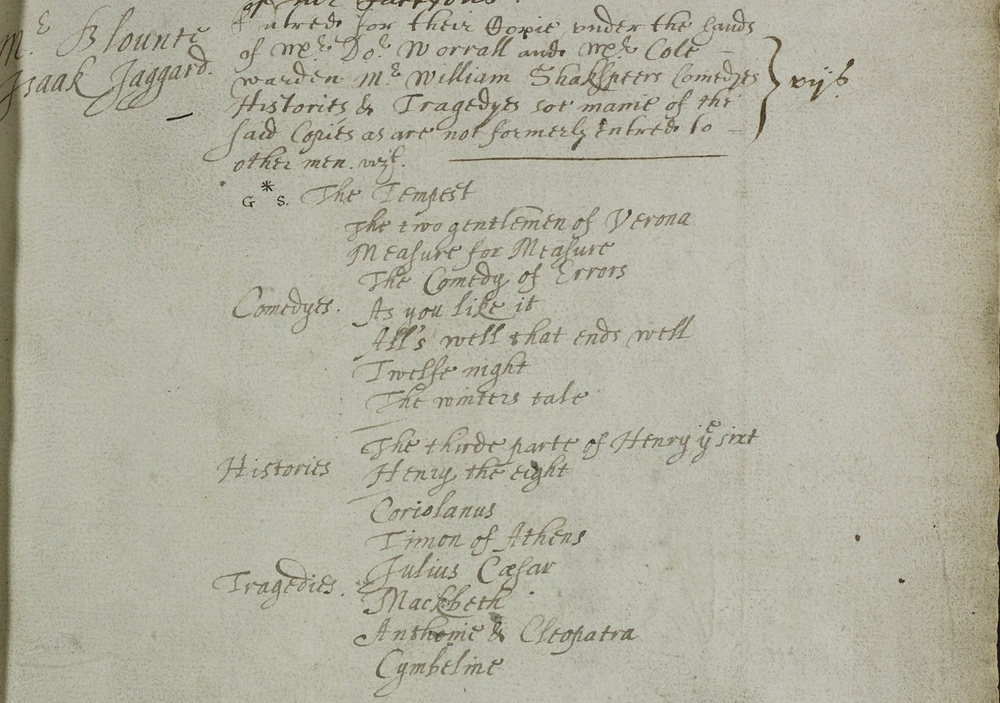 Mr. Blounte
Isaak Jaggard.
Entred for their Copie vnder the hands
of Mr. Dor. Worrall and Mr. Cole –
warden Mr. William Shakspeers Comedyes
Histories & Tragedyes soe manie of the
said Copies as are not formerly entred to –
other men. vizt.
vijs
G * S. The Tempest
The two gentlemen of Verona
Measure for Measure
The Comedy of Errors
Comedyes. As you like it
All's well that ends well
Twelfe night
The winters tale
The thirde parte of Henry ye sixt
Histories Henry the eight
Coriolanus
Timon of Athens
Tragedies. Julius Cæsar
Mackbeth
Anthonie & Cleopatra
Cymbeline